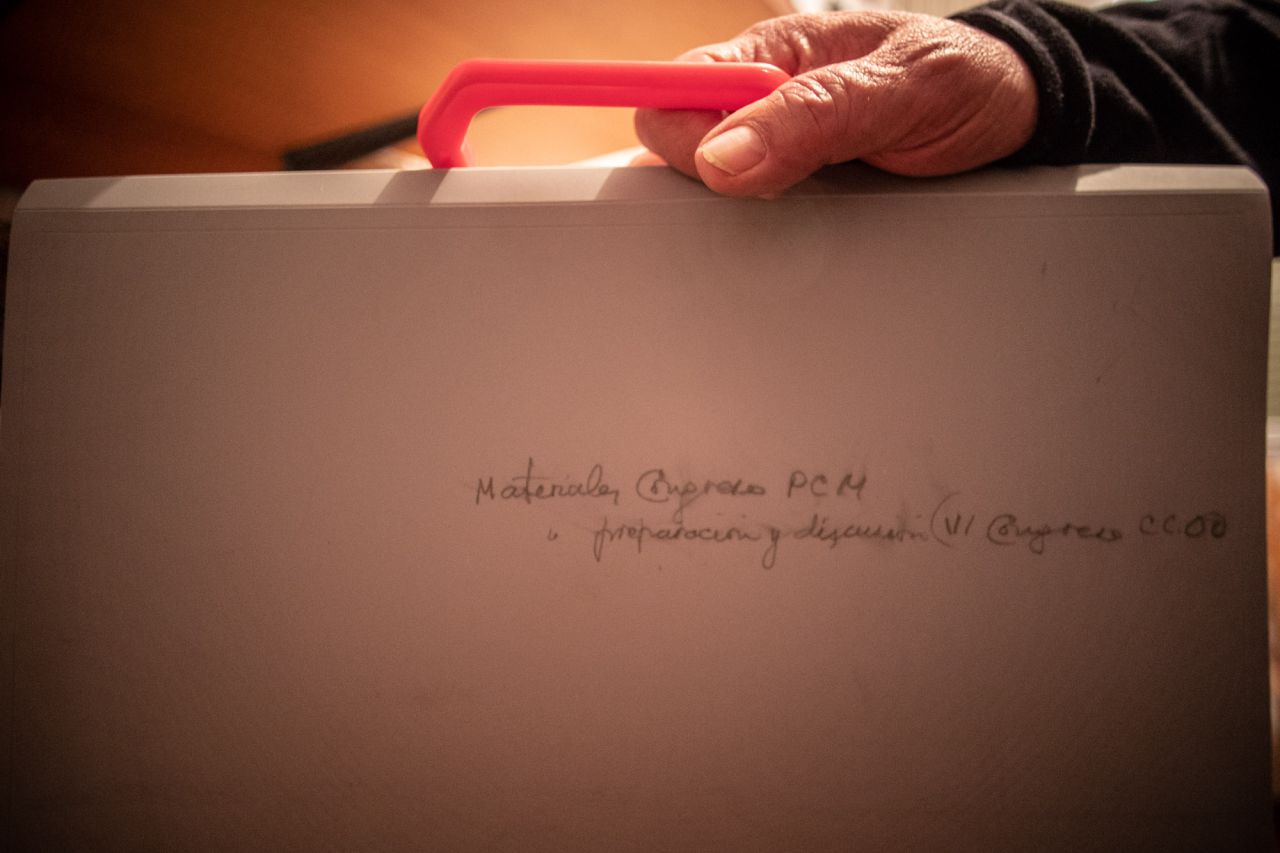 Materiales Congreso PCM
" preparacion y discusión (VI Congreso CC.OO